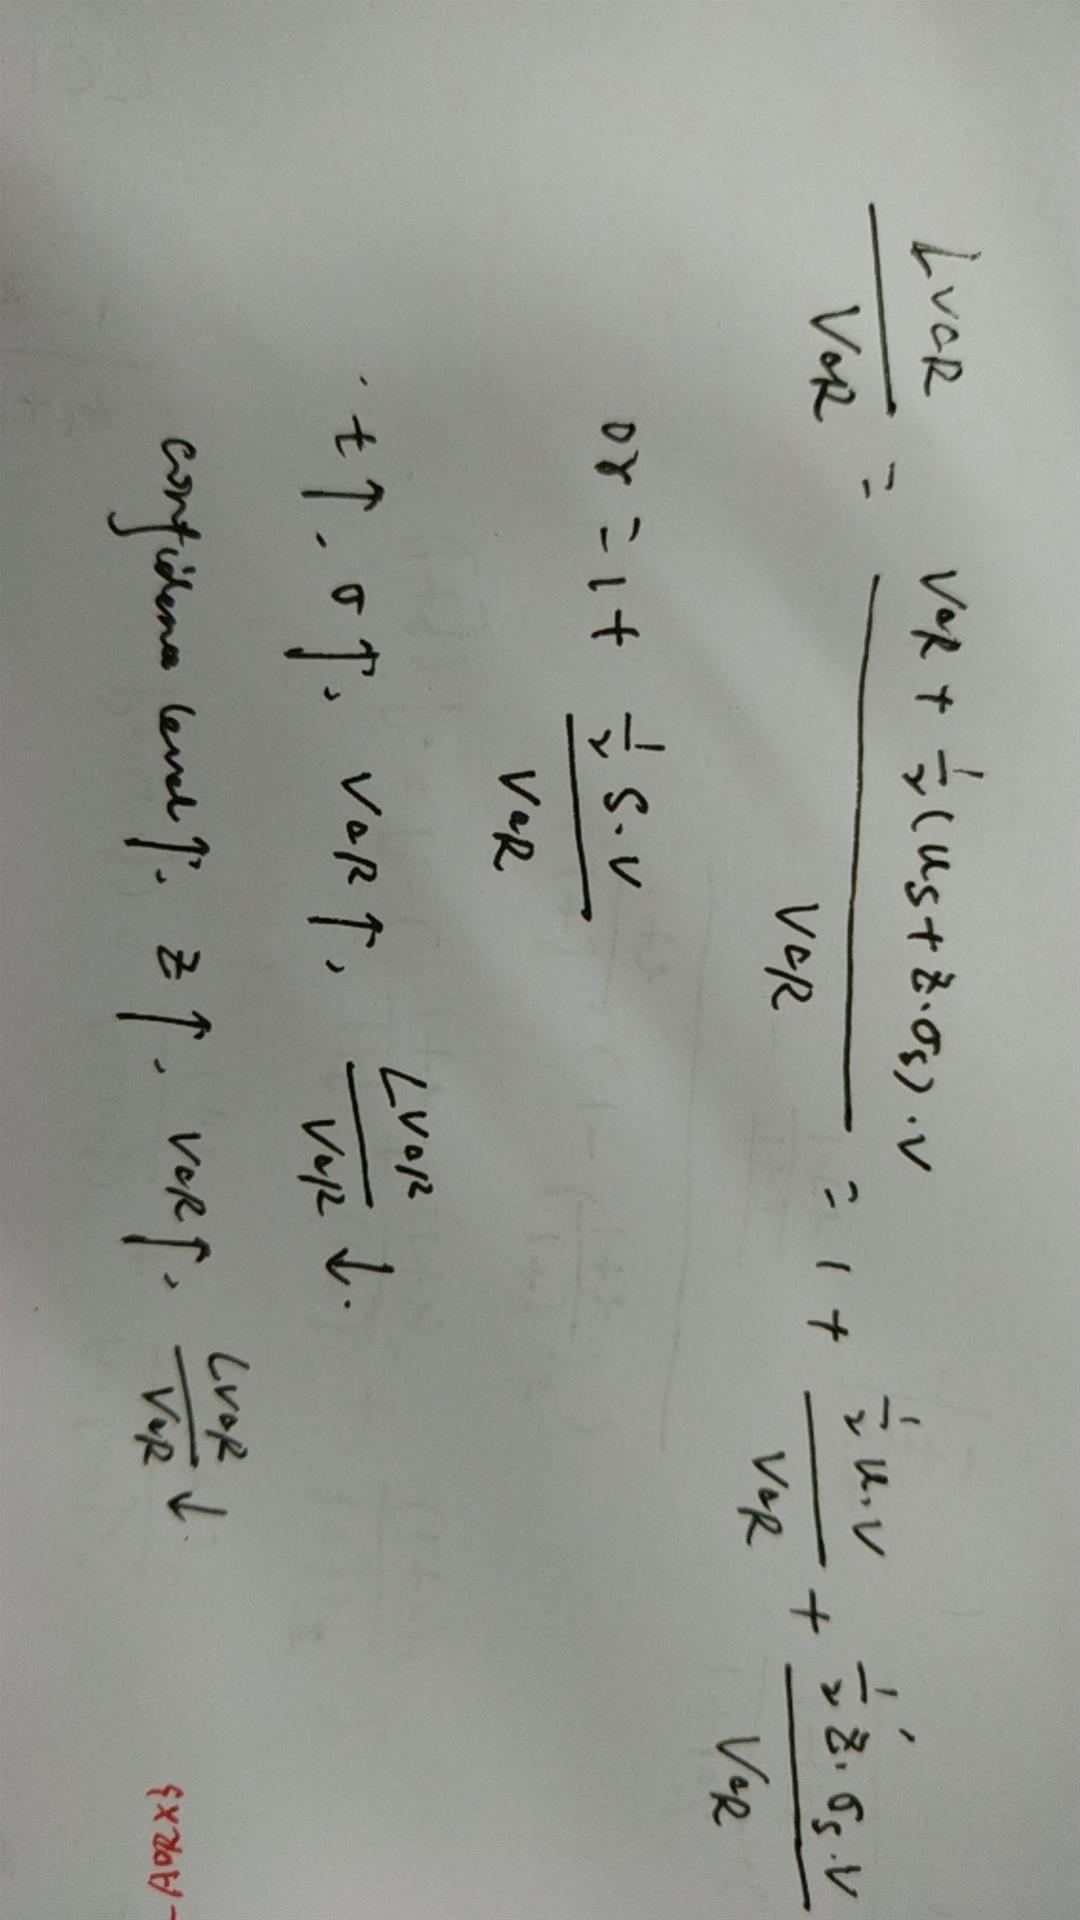 LVaR/VaR = (VaR + 1/2(us + z·σs)·V)/VaR = 1 + (1/2 u·V)/VaR + (1/2 z·σs·V)/VaR
or = 1 + (1/2 S·V)/VaR
t↑. σ↑, VaR↑, LVaR/VaR ↓.
confidence level↑. z↑. VaR↑, LVaR/VaR ↓.